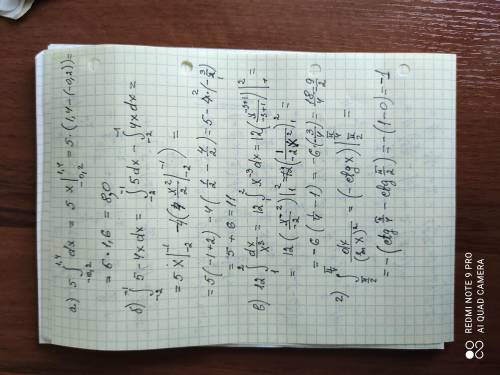 а) 5 ∫₋₀,₂^1,4 dx = 5 x |₋₀,₂^1,4 = 5·(1,4-(-0,2))=
= 6·1,6 = 8,0
б) ∫₋₂^-1 5-4x dx = ∫₋₂^-1 5dx - ∫₋₂^-1 4x dx =
= 5 x |₋₂^-1 - (4 x²/2 |₋₂^-1) =
= 5(-1+2) - 4(1/2 - 4/2) = 5 - 4·(-3/2)
= 5 + 6 = 11
в) 12 ∫₁^2 dx/x³ = 12 ∫₁^2 x⁻³ dx = 12 (x⁻³⁺¹/-3+1) |₁^2 =
= 12 (x⁻²/-2) |₁^2 = 12 (1/-2x²) |₁^2 =
= -6 (1/4 - 1) = -6 (-3/4) = 18/4 = 9/2
г) ∫ dx/(sin x)² = (-ctg x) | =
= -(ctg π/4 - ctg π/2) = -(1-0) = -1
REDMI NOTE 9 PRO
AI QUAD CAMERA